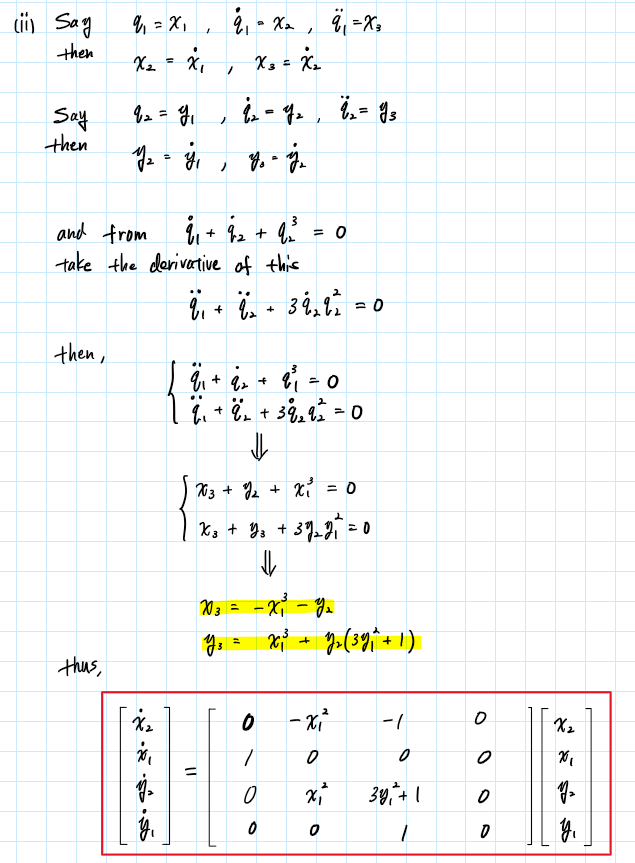 (ii) Say q₁ = x₁ , q̇₁ = x₂ , q̈₁ = x₃
then x₂ = ẋ₁ , x₃ = ẋ₂
Say q₂ = y₁ , q̇₂ = y₂ , q̈₂ = y₃
then y₂ = ẏ₁ , y₃ = ẏ₂
and from q̇₁ + q̇₂ + q₂³ = 0
take the derivative of this
q̈₁ + q̈₂ + 3q̇₂q₂² = 0
then,
{ q̈₁ + q̇₂ + q₁³ = 0
q̈₁ + q̈₂ + 3q̇₂q₂² = 0
⇓
{ x₃ + y₂ + x₁³ = 0
x₃ + y₃ + 3y₂y₁² = 0
⇓
x₃ = -x₁³ - y₂
y₃ = x₁³ + y₂(3y₁² + 1)
thus,
[ẋ₂] [0 -x₁² -1 0] [x₂]
[ẋ₁] [1 0 0 0] [x₁]
[ẏ₂] = [0 x₁² 3y₁²+1 0] [y₂]
[ẏ₁] [0 0 1 0] [y₁]